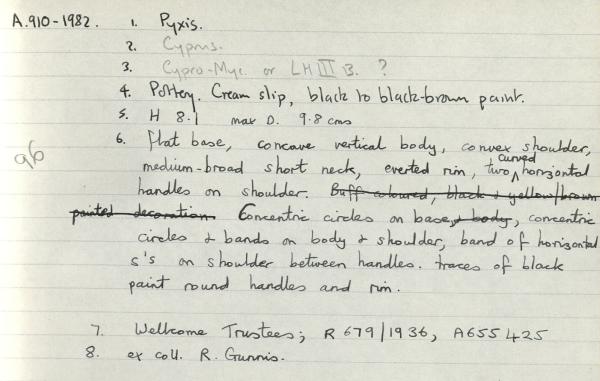 A.910-1982. 1. Pyxis.
2. Cyprus.
3. Cypro-Myc. or LH III B. ?
4. Pottery. Cream slip, black to black-brown paint.
5. H 8.1 max D. 9.8 cms
96
6. Flat base, concave vertical body, convex shoulder,
medium-broad short neck, everted rim, two curved horizontal
handles on shoulder. Buff coloured, black & yellow/brown
painted decoration. Concentric circles on base, & body, concentric
circles & bands on body & shoulder, band of horizontal
s's on shoulder between handles. traces of black
paint round handles and rim.
7. Wellcome Trustees; R 679/1936, A655425
8. ex coll. R. Gunnis.